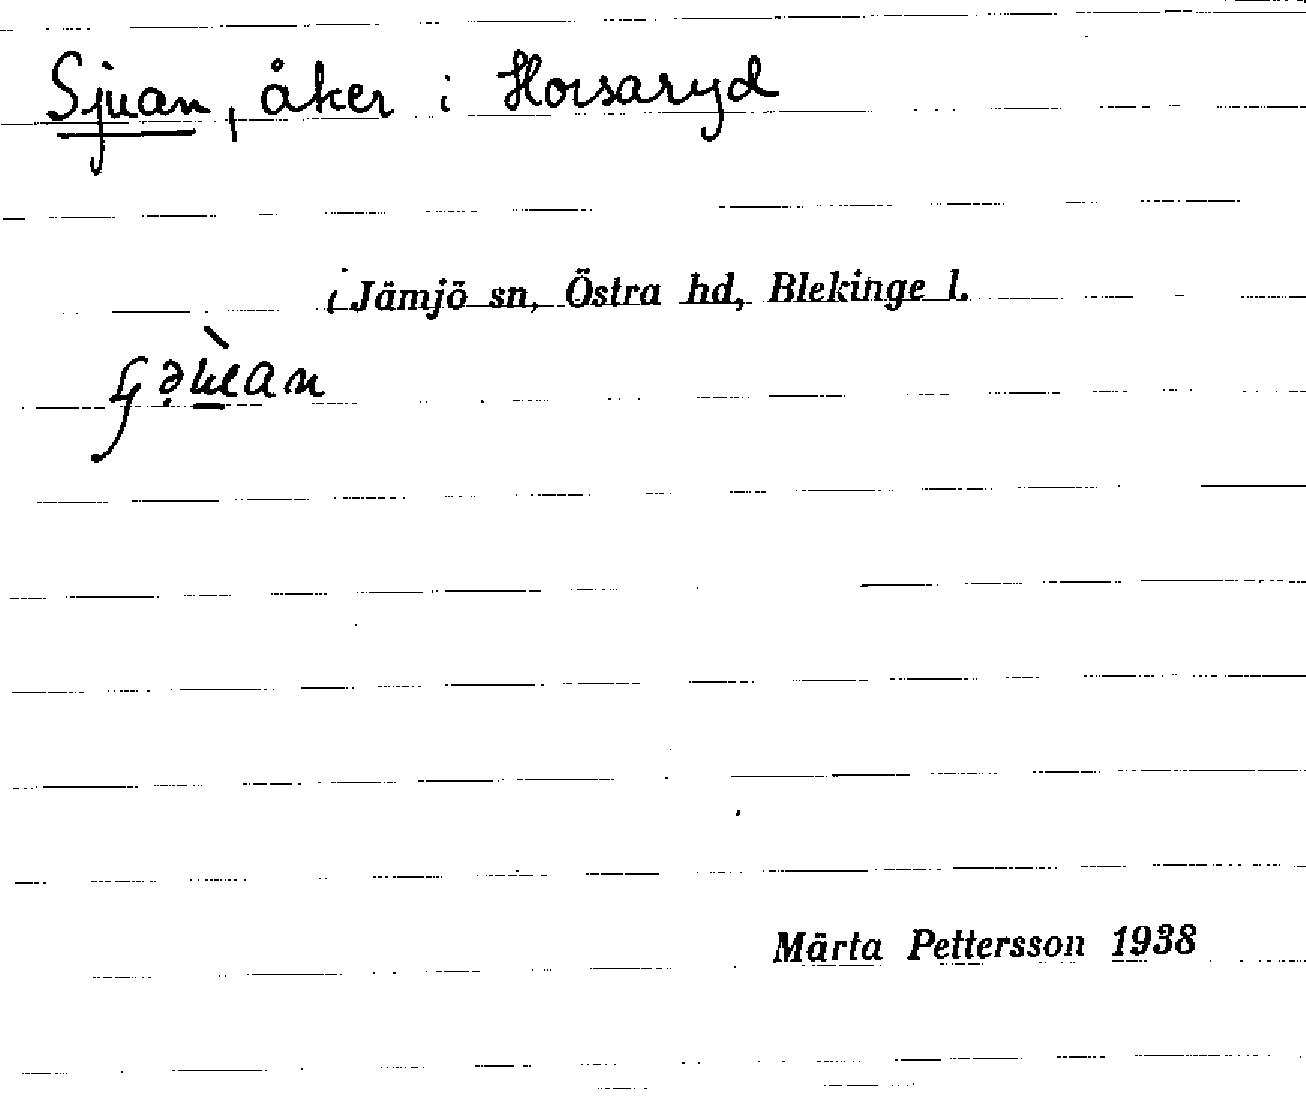 Sjuan, åker i Horsaryd
i Jämjö sn, Östra hd, Blekinge l.
Märta Pettersson 1938